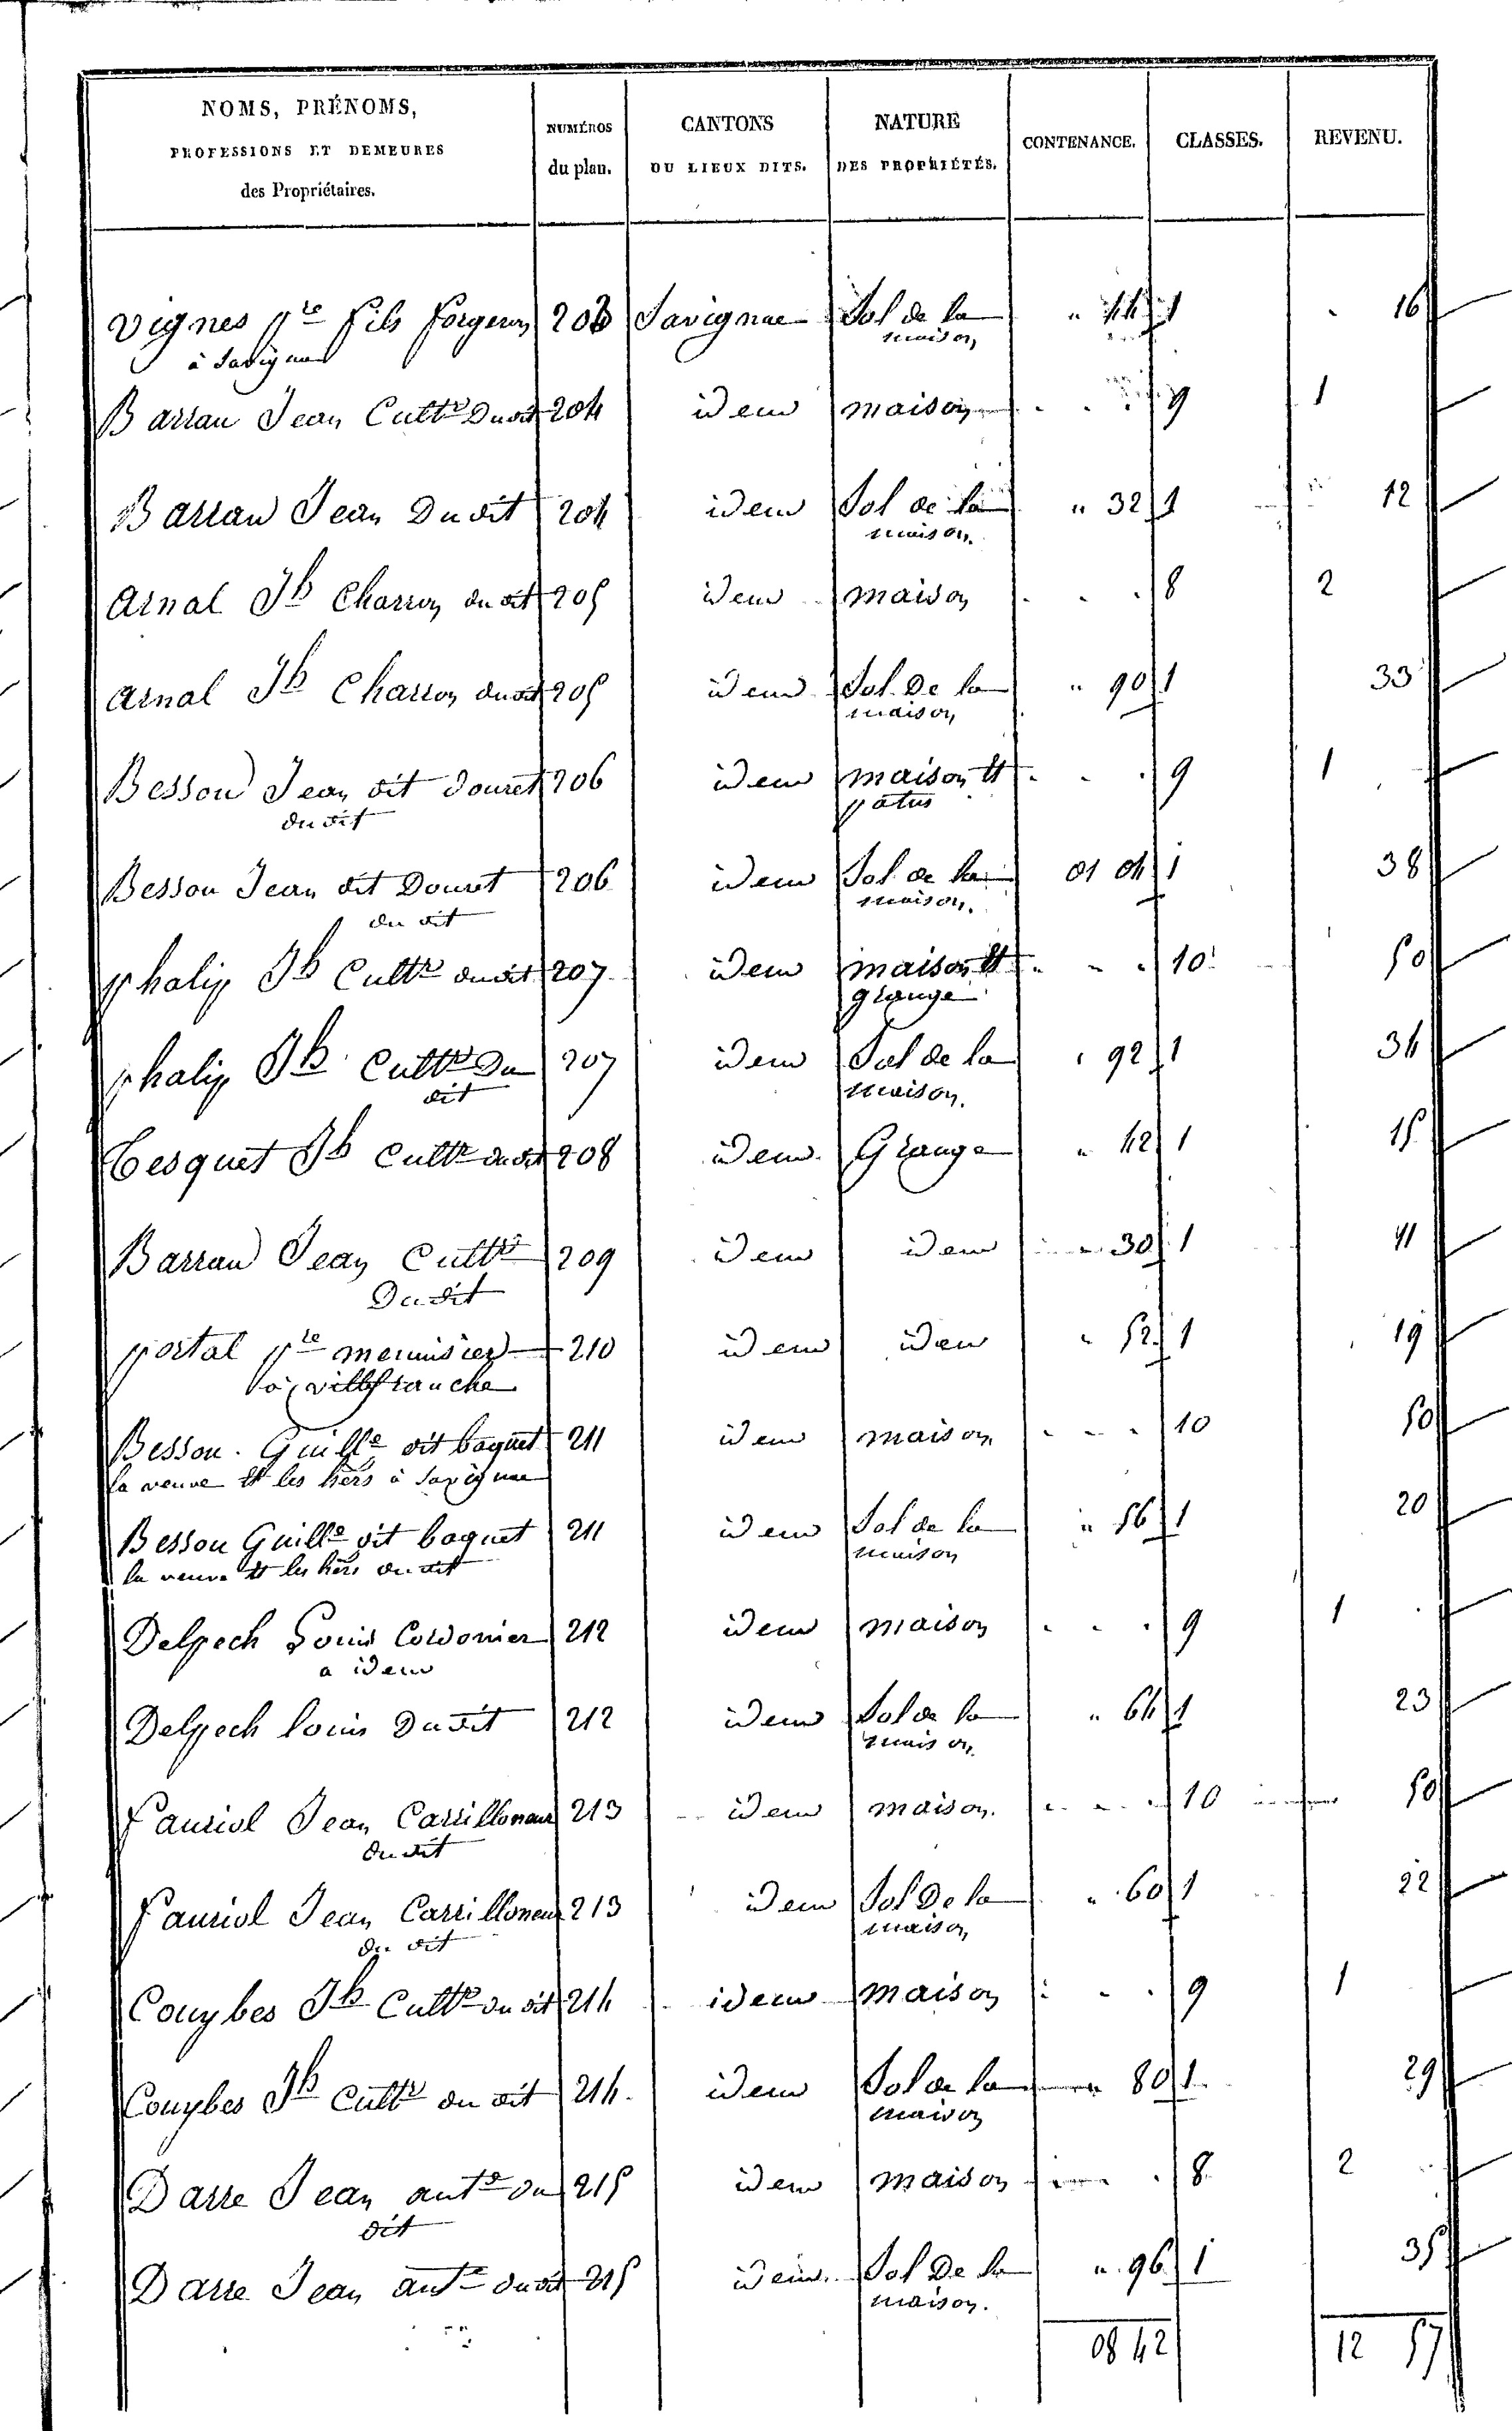 NOMS, PRÉNOMS,
PROFESSIONS ET DEMEURES
des Propriétaires.
NUMÉROS
du plan.
CANTONS
OU LIEUX DITS.
NATURE
DES PROPRIÉTÉS.
CONTENANCE.
CLASSES.
REVENU.
Vignes pre fils forgeron 203 Savignac Sol de la " 44 1 " 16
à Savignac maison
Barrau Jean Cultr dudit 204 idem maison . . . 9 1
Barrau Jean Dudit 204 idem Sol de la " 32 1 12
maison.
Arnal Jh Charron dudit 205 idem maison . . . 8 2
Arnal Jh Charron dudit 205 idem Sol De la " 90 1 33
maison
Besson Jean dit Douret 206 idem maison et . . . 9 1
du dit patus
Besson Jean dit Douret 206 idem Sol de la 01 04 1 38
du dit maison.
phalip Jh Cultr dudit 207 idem maison et . . . 10 50
grange
phalip Jh Cultr Du 207 idem Sol de la " 92 1 34
dit maison.
Cesquet Jh Cultr dudit 208 idem Grange " 42 1 15
Barrau Jean Cultr 209 idem idem " 30 1 11
Du dit
portal pre menuisier 210 idem idem " 52 1 19
à villefranche
Besson Guille dit baquet 211 idem maison . . . 10 50
la veuve et les hers à Savignac
Besson Guille dit baquet 211 idem Sol de la " 56 1 20
la veuve et les hers du dit maison
Delpech Louis Cordonier 212 idem maison . . . 9 1
a idem
Delpech louis Dudit 212 idem Sol de la " 64 1 23
maison
Fauriol Jean Carrilloneur 213 idem maison. . . . 10 50
du dit
Fauriol Jean Carrilloneur 213 idem Sol De la " 60 1 22
du dit maison
Couybes Jh Cultr du dit 214 idem maison . . . 9 1
Couybes Jh Cultr du dit 214. idem Sol de la " 80 1 29
maison
Darre Jean ante du 215 idem maison . 8 2
dit
Darre Jean ante dudit 215 idem. Sol De la " 96 1 35
maison.
08 42 12 57